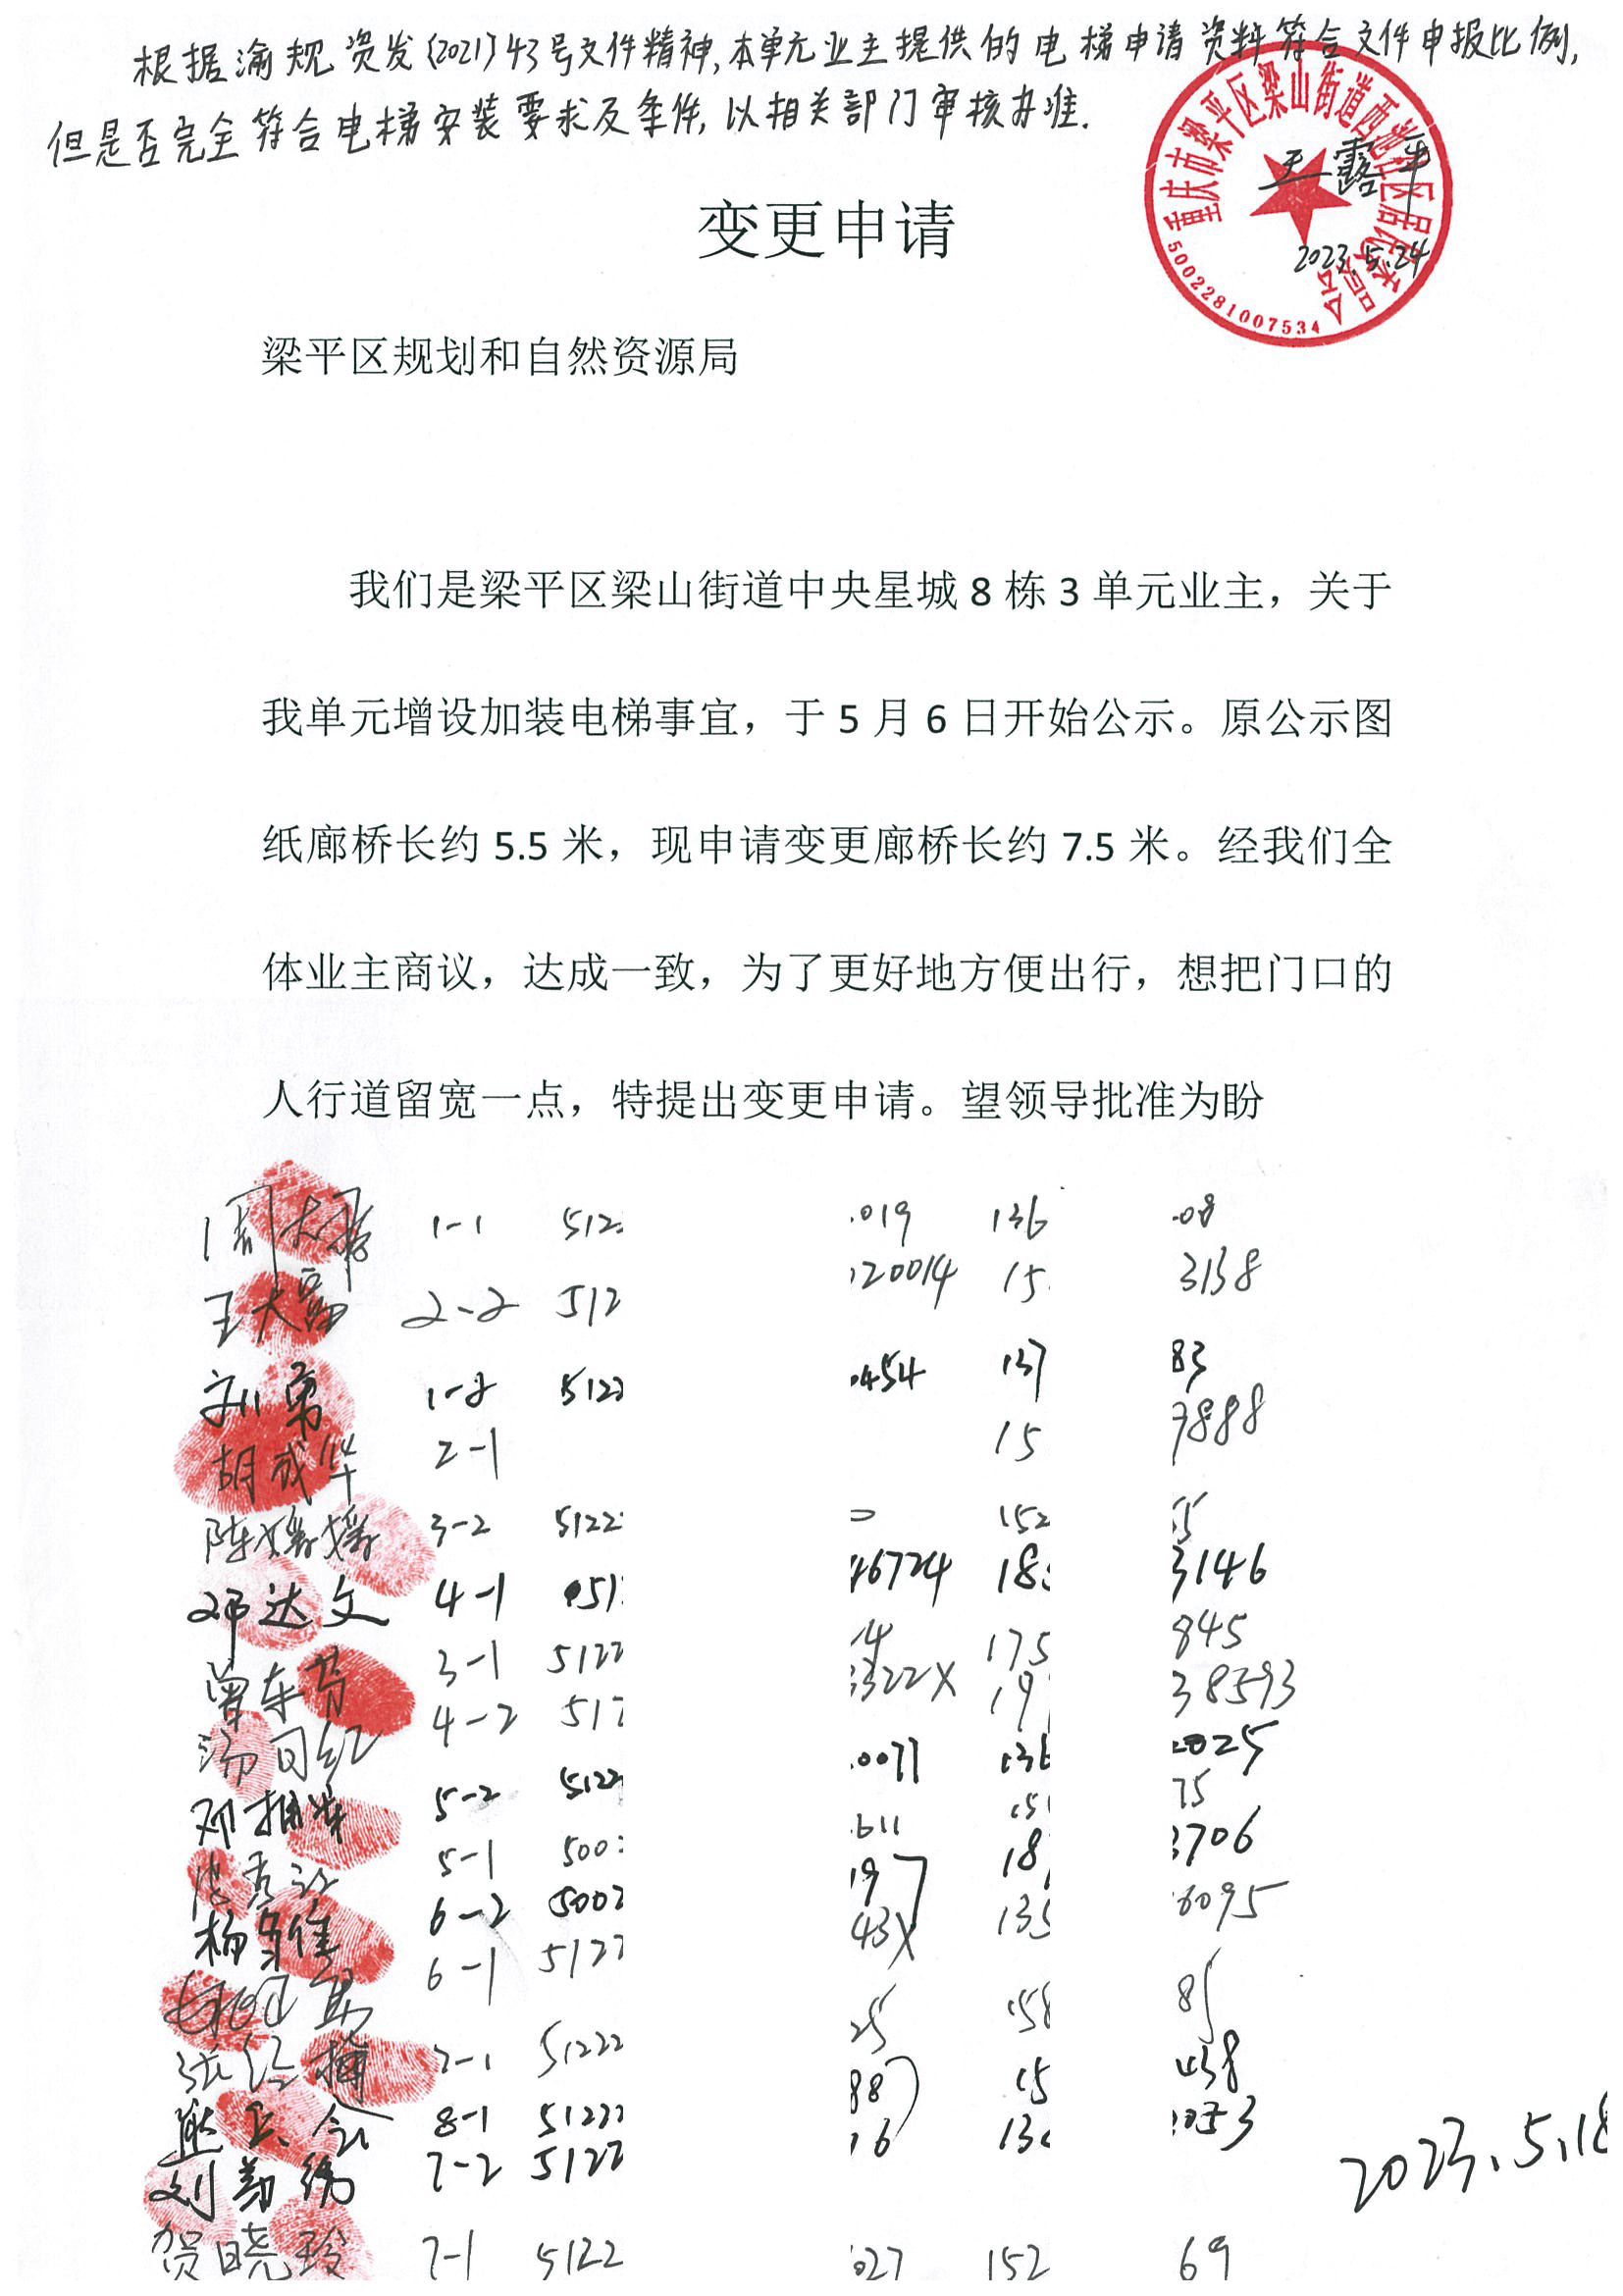 根据渝规资发〔2021〕43号文件精神,本单元业主提供的电梯申请资料符合文件申报比例,
但是否完全符合电梯安装要求及条件,以相关部门审核为准.
重庆市梁平区梁山街道西池社区居民委员会
5002281007534
王露平
2023.5.24
变更申请
梁平区规划和自然资源局
我们是梁平区梁山街道中央星城 8 栋 3 单元业主，关于
我单元增设加装电梯事宜，于 5 月 6 日开始公示。原公示图
纸廊桥长约 5.5 米，现申请变更廊桥长约 7.5 米。经我们全
体业主商议，达成一致，为了更好地方便出行，想把门口的
人行道留宽一点，特提出变更申请。望领导批准为盼
1-1 512 019 136 08
王大富 2-2 512 20014 15 3138
刘勇 1-2 5122 0454 137 83
胡成华 2-1 15 7888
陈媛媛 3-2 5122 152 5
邓达文 4-1 51 46724 18 3146
曾东芳 3-1 5122 4 175 845
汤同红 4-2 512 322X 19 38593
邓 5-2 5122 0071 136 2025
5-1 500 611 15 75
杨维 6-2 5002 197 18 3706
6-1 5122 43X 135 6095
张红梅 7-1 51222 25 158 85
熊 8-1 51222 88 15 438
刘 7-2 5122 16 13 1053
贺晓玲 7-1 5122 027 152 69
2023.5.18